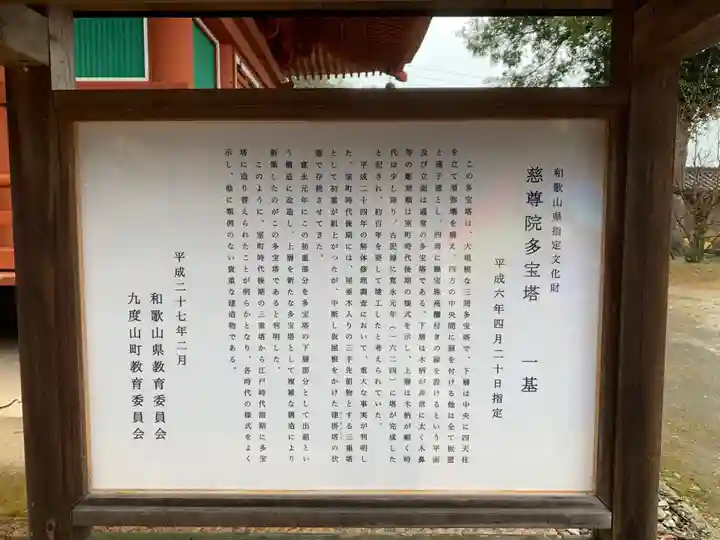 和歌山県指定文化財
慈尊院多宝塔　一基
平成六年四月二十日指定
この多宝塔は、大規模な三間多宝塔で、下層は中央に四天柱
を立て須弥壇を構え、四方の中央間に扉を付ける他は全て板壁
と連子窓とし、四面に擬宝珠高欄付きの縁を設けるという平面
及び立面は通常の多宝塔である。下層は木柄が非常に太く木鼻
等の彫刻類は室町時代後期の様式を示し、上層は木柄が細く時
代は少し降り、古記録に寛永元年（一六二四）に塔が完成した
と記され、約百年を要して竣工したと考えられていた。
平成二十四年の解体修理調査において、重大な事実が判明し
た。室町時代後期には、尾垂木入りの三手先組物とする三重塔
として初重が組上がったが、中断し仮屋根をかけた建掛塔の状
態で存続させてきた。
寛永元年にこの初重部分を多宝塔の下層部分として出組とい
う構造に改造し、上層を新たな多宝塔として複雑な構造により
新築したのがこの多宝塔であると判明した。
このように、室町時代後期の三重塔から江戸時代前期に多宝
塔に造り替えられたことが明らかとなり、各時代の様式をよく
示し、他に類例のない貴重な建造物である。
平成二十七年二月
和歌山県教育委員会
九度山町教育委員会